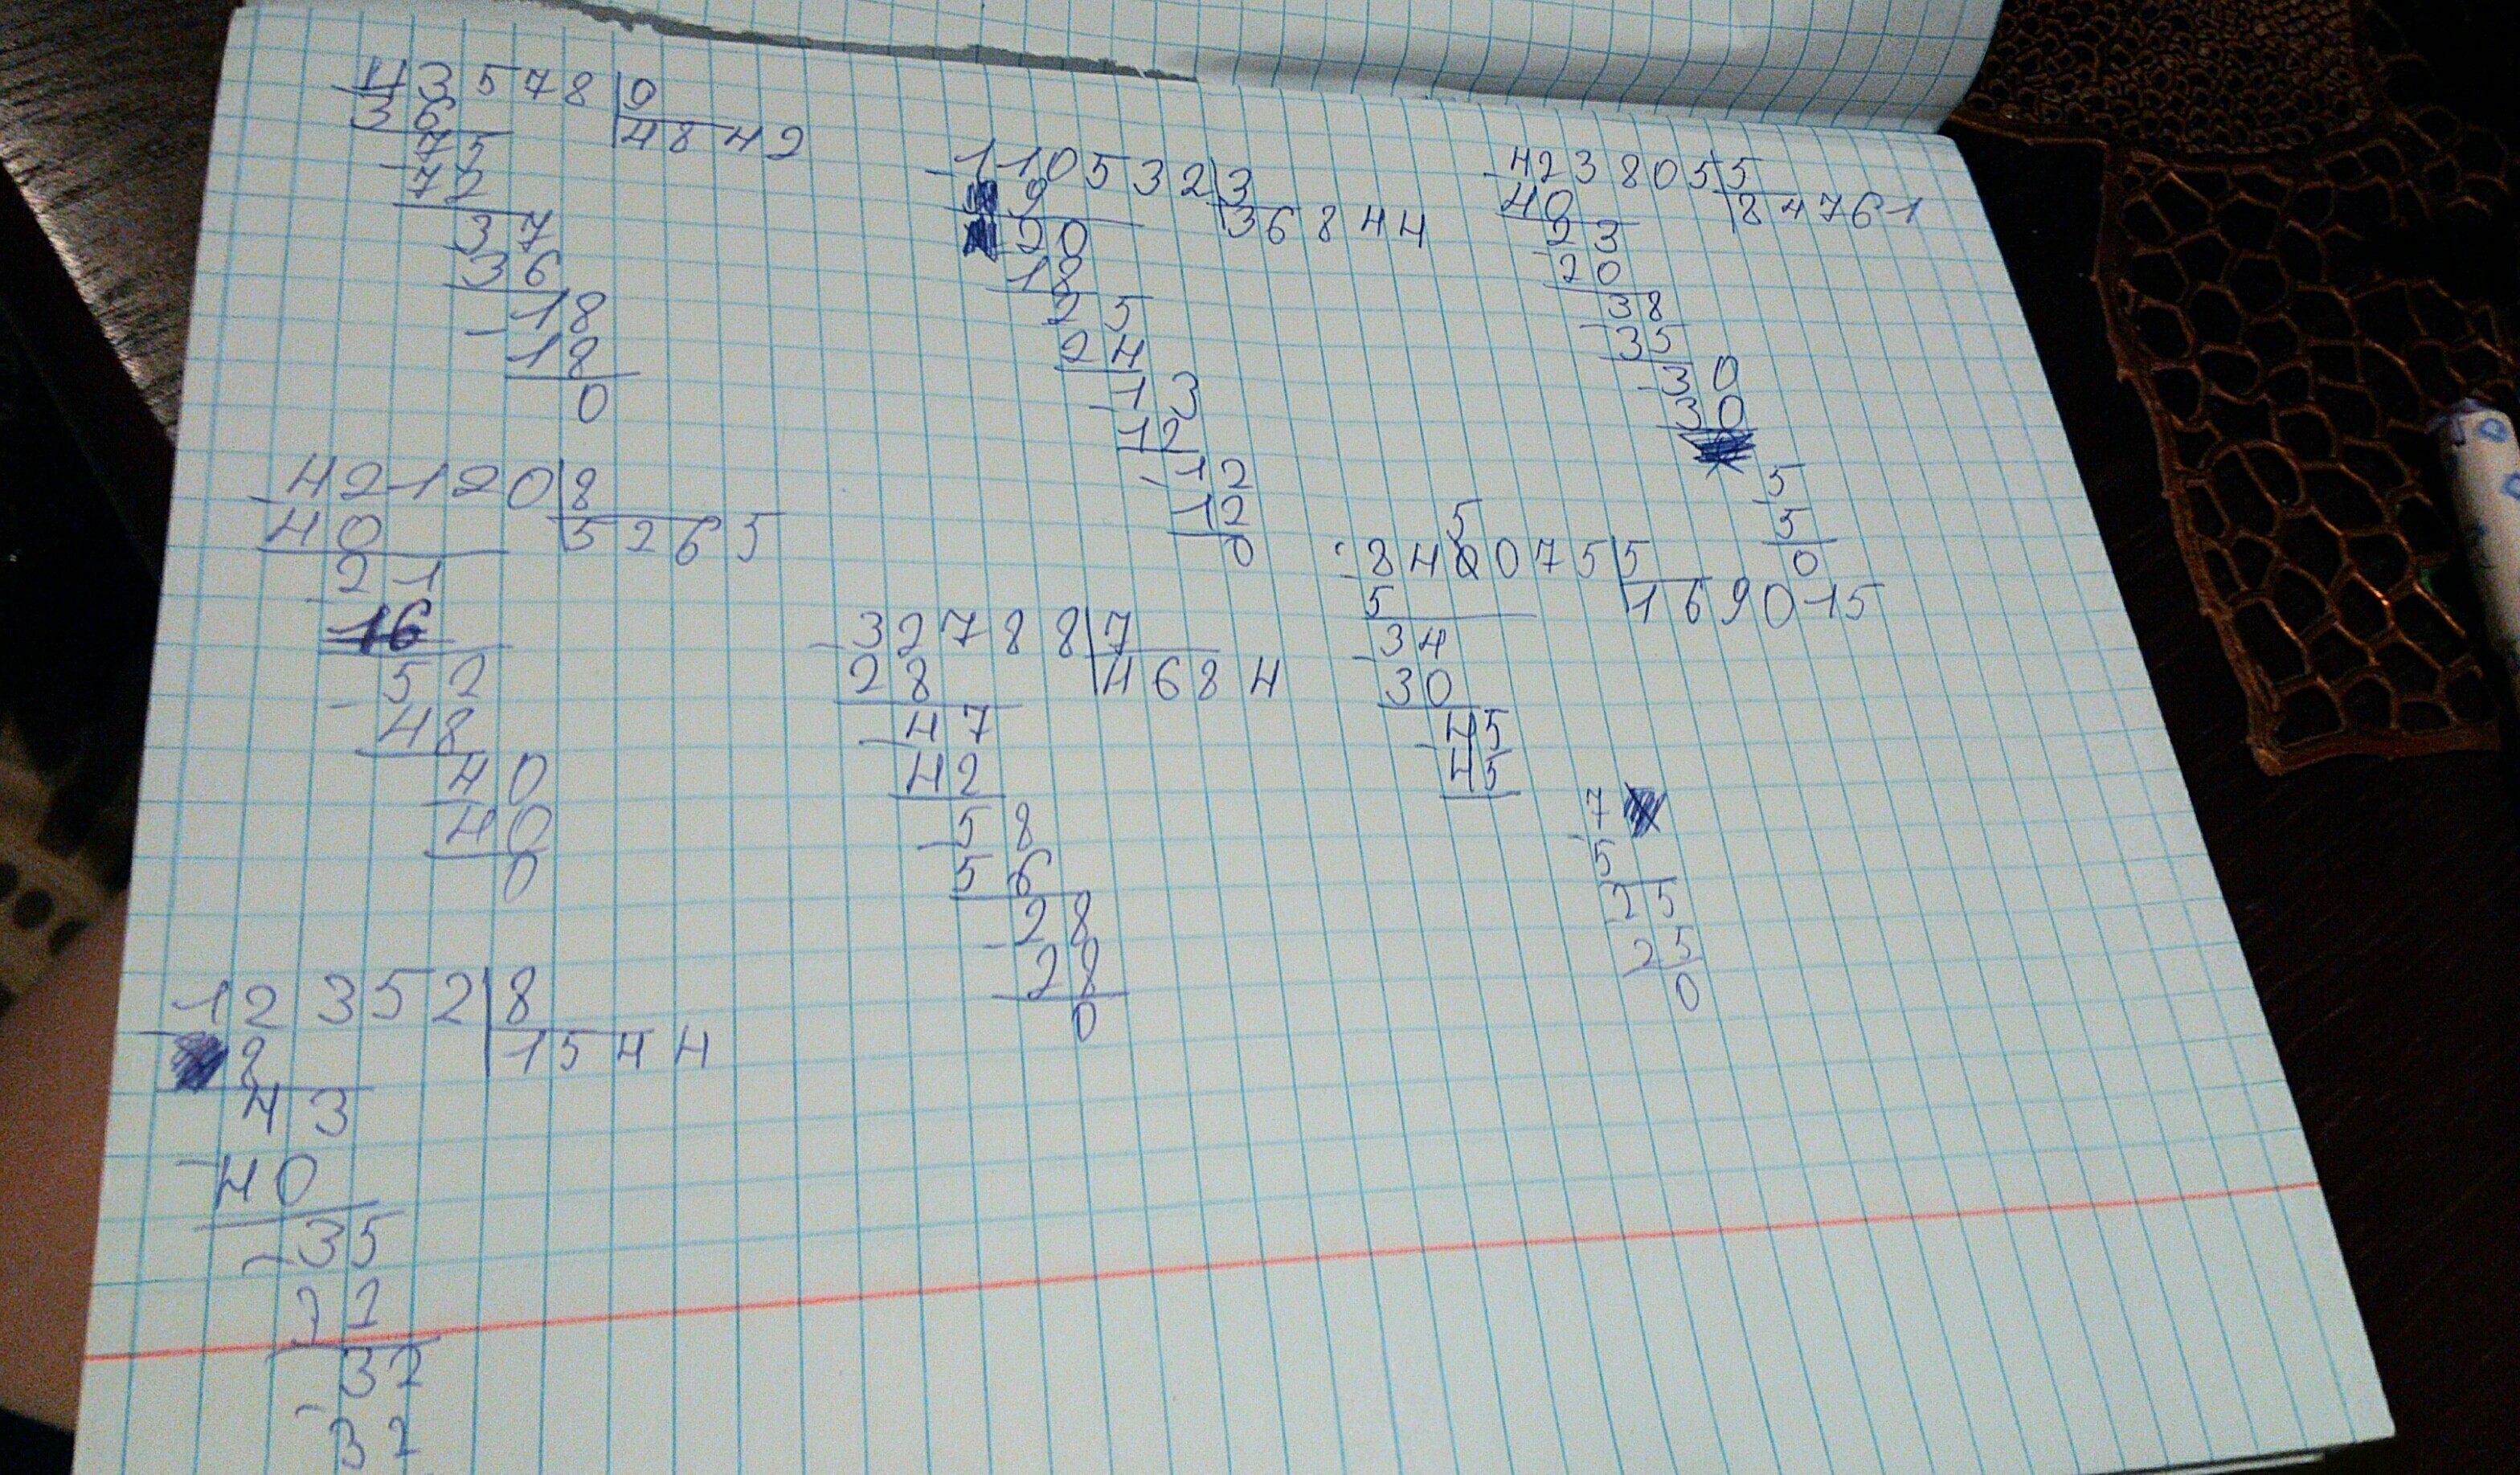 43578 9
36 4842
75
72
37
36
18
18
0
42120 8
40 5265
21
16
52
48
40
40
0
12352 8
8 1544
43
40
35
32
32
32
110532 3
9 36844
20
18
25
24
13
12
12
12
0
32788 7
28 4684
47
42
58
56
28
28
0
423805 5
40 84761
23
20
38
35
30
30
5
5
0
5
840075 5
5 169015
34
30
45
45
7
5
25
25
0